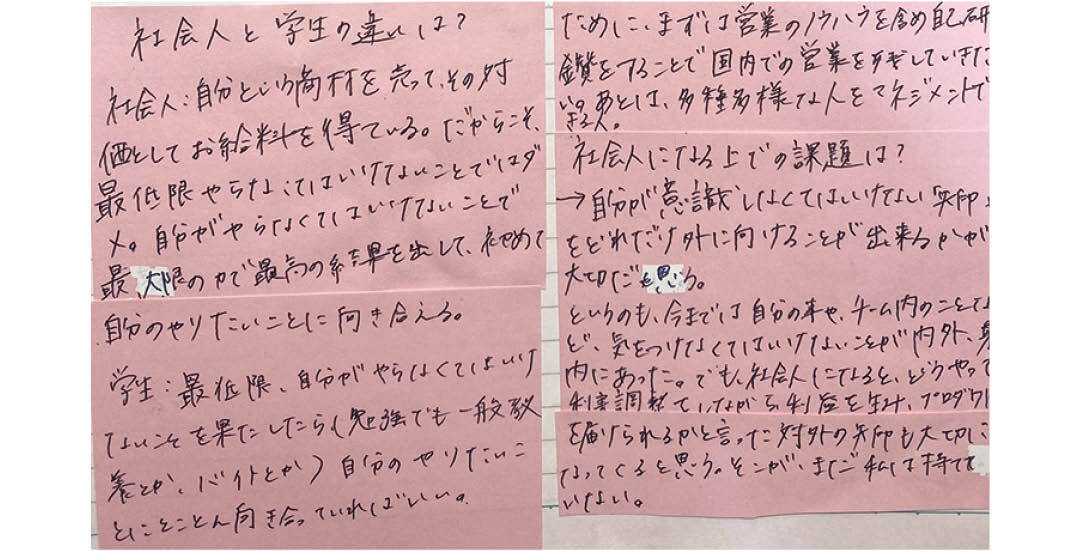 社会人と学生の違いは？
社会人：自分という商材を売って、その対
価としてお給料を得ている。だからこそ、
最低限やらなくてはいけないことではダ
メ。自分がやらなくてはいけないことで
最大限の力で最高の結果を出して、初めて
自分のやりたいことに向き合える。
学生：最低限、自分がやらなくてはいけ
ないことを果たしたら（勉強でも一般教
養とか、バイトとか）自分のやりたいこ
とにとことん向き合っていればいい。
ために、まずは営業のノウハウを含め自己研
鑽をすることで国内での営業を
いい。あとは、多種多様な人をマネジメントで
きる人。
社会人になる上での課題は？
→自分が意識しなくてはいけない「矢印」
をどれだけ外に向けることが出来るかが
大切だと思う。
というのも、今までは自分の事や、チーム内のことな
ど、気をつけなくてはいけないことが内外、身
内にあった。でも、社会人になると、どうやって
利害調整をしながら、利益を生み、プロダクト
を届けられるかと言った対外の矢印も大切に
なってくると思う。そこが、まだ私は持てて
いない。